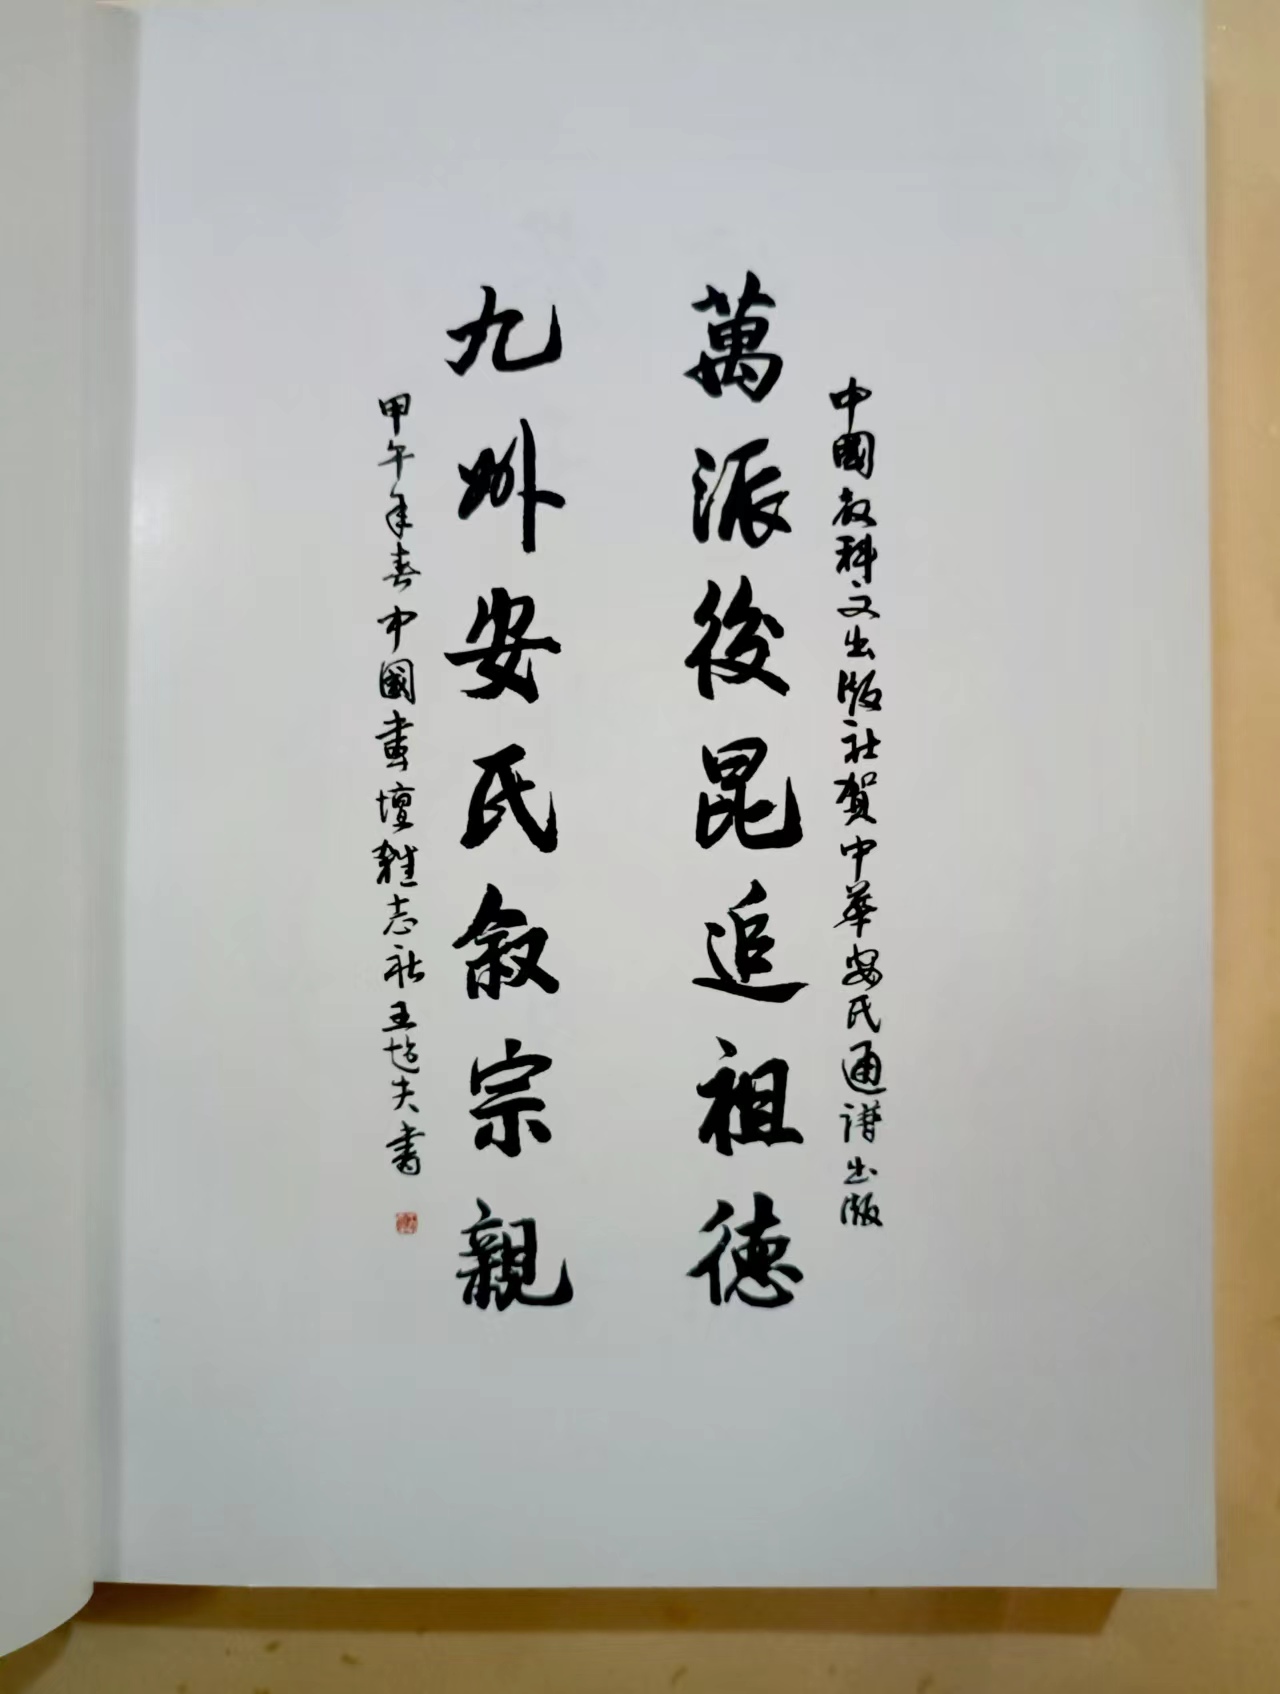 中國教科文出版社贺中华安氏通谱出版
萬派後昆追祖德
九州安氏叙宗親
甲午年春中國書壇雜志社王 夫書